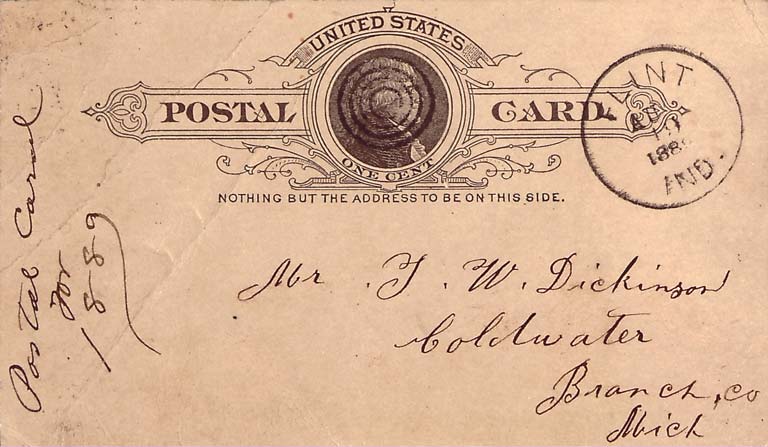 UNITED STATES
POSTAL CARD
ONE CENT
NOTHING BUT THE ADDRESS TO BE ON THIS SIDE.
FLINT
AUG
188
IND.
Mr. T. W. Dickinson
Coldwater
Branch, Co
Mich
Postal Card
for
1889